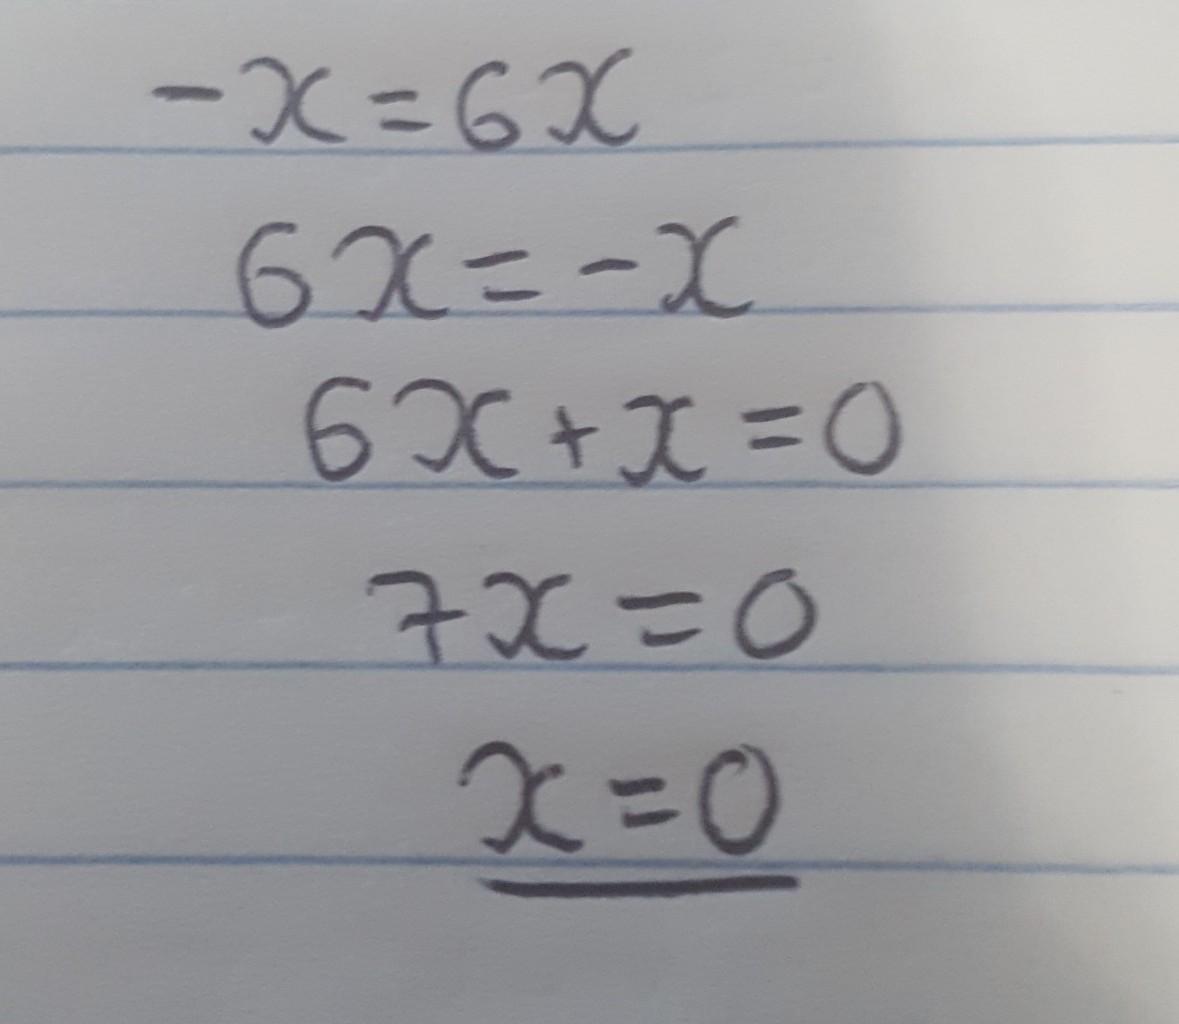 -x=6x
6x=-x
6x+x=0
7x=0
x=0